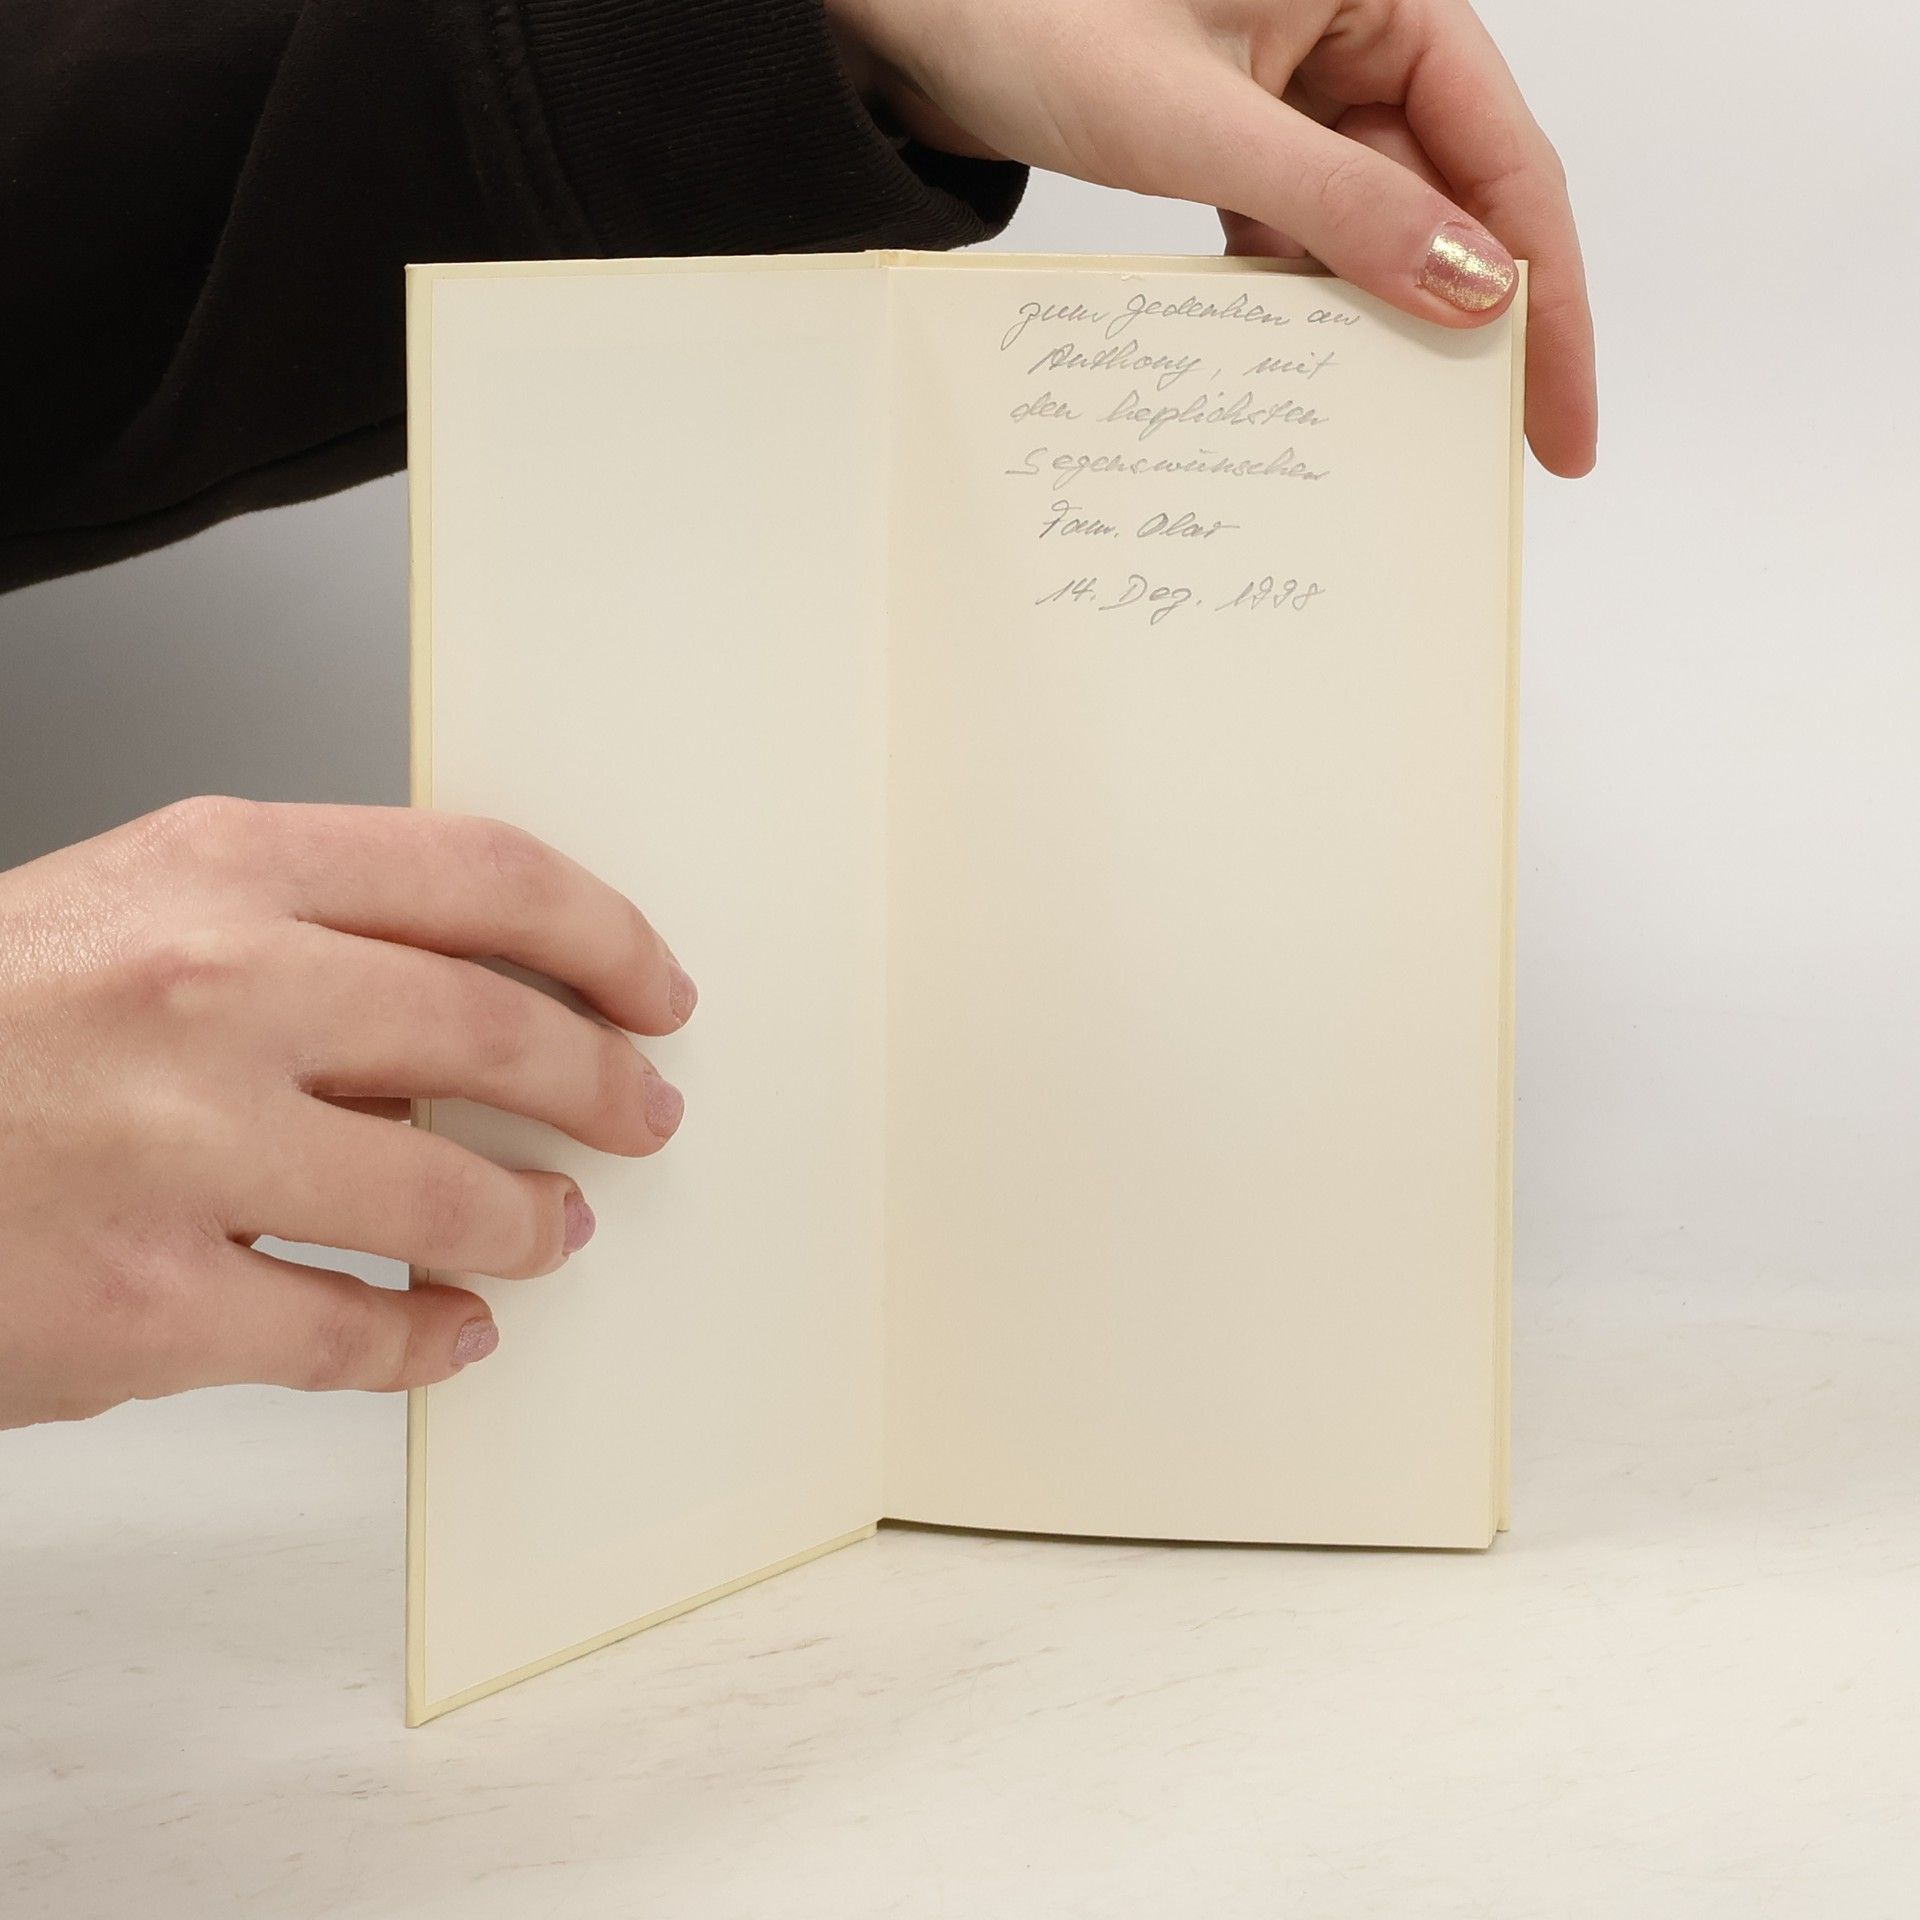 zum Gedenken an
Anthony, mit
den herzlichsten
Segenswünschen
Fam. Olar
14. Dez. 1998